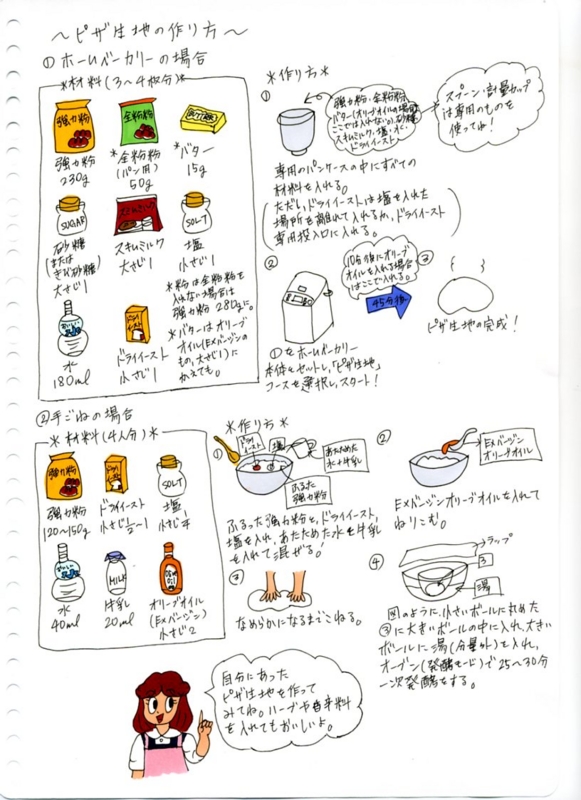 〜ピザ生地の作り方〜
①ホームベーカリーの場合
*材料(3〜4枚分)*
強力粉
強力粉
230g
全粒粉
*全粒粉
(パン用)
50g
*バター
15g
SUGAR
砂糖
または
きび砂糖
大さじ1
スキムミルク
スキムミルク
大さじ1
SOLT
塩
小さじ1
おいしい
水
水
180ml
ドライイースト
小さじ1
*粉は全粒粉を
入れない場合は
強力粉280gに。
*バターはオリーブ
オイル(EXバージンの
もの,大さじ1)に
かえても。
*作り方*
①
強力粉・全粒粉・
バター(オリーブオイルの場合は
ここでは入れない)・砂糖・
スキムミルク・塩・水・
ドライイースト
スプーン・計量カップ
は専用のものを
使ってね!
専用のパンケースの中にすべての
材料を入れる。
(ただし,ドライイーストは塩を入れた
場所を離れて入れるか,ドライイースト
専用投入口に入れる。)
②
①をホームベーカリー
本体にセットし,「ピザ生地」
コースを選択し,スタート!
10分後にオリーブ
オイルを入れる場合
はここで入れる。
45分後
③
ピザ生地の完成!
②手ごねの場合
*材料(4人分)*
強力粉
強力粉
120〜150g
ドライイースト
小さじ1/2〜1
SOLT
塩
水
40ml
MILK
牛乳
20ml
オリーブオイル
(EXバージン)
小さじ2
*作り方*
①
ドライ
イースト
塩
あたためた
水+牛乳
ふるった
強力粉
ふるった強力粉と,ドライイースト,
塩を入れ,あたためた水と牛乳
を入れて混ぜる!
②
EXバージン
オリーブオイル
EXバージンオリーブオイルを入れて
ねりこむ。
③
なめらかになるまでこねる。
④
ラップ
3
湯
図のように,小さいボールに丸めた
③に大きいボールの中に入れ,大きい
ボールに湯(分量外)を入れ,
オーブン(発酵モード)で25〜30分
一次発酵をする。
自分にあった
ピザ生地を作って
みてね。ハーブや香辛料
を入れてもおいしいよ。